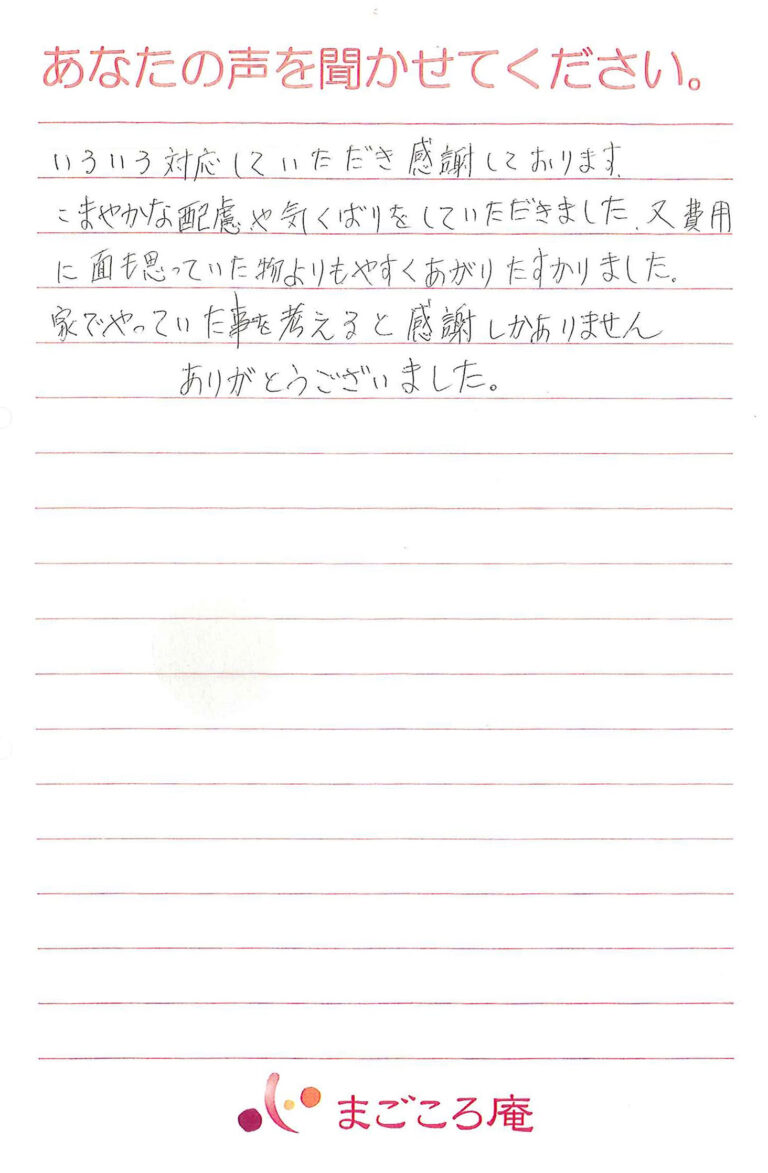 あなたの声を聞かせてください。
いろいろ対応していただき感謝しております.
こまやかな配慮や気くばりをしていただきました.又費用
に面も思っていた物よりもやすくあがりたすかりました。
家でやっていた事を考えると感謝しかありません
ありがとうございました。
まごころ庵